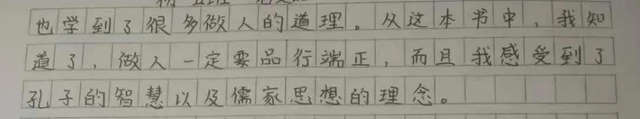 也学到了很多做人的道理。从这本书中，我知
道了，做人一定要品行端正，而且我感受到了
孔子的智慧以及儒家思想的理念。